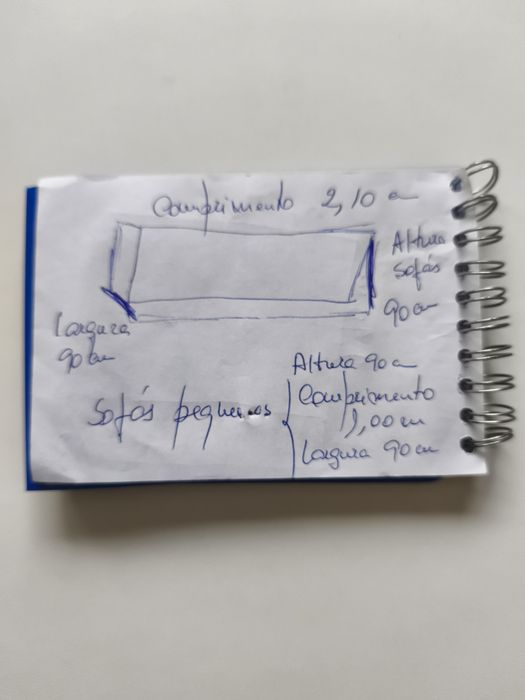 Comprimento 2,10 m
Altura
Sofás
90 cm
Largura
90 cm
Sofás pequenos
Altura 90 cm
Comprimento
1,00 m
Largura 90 cm